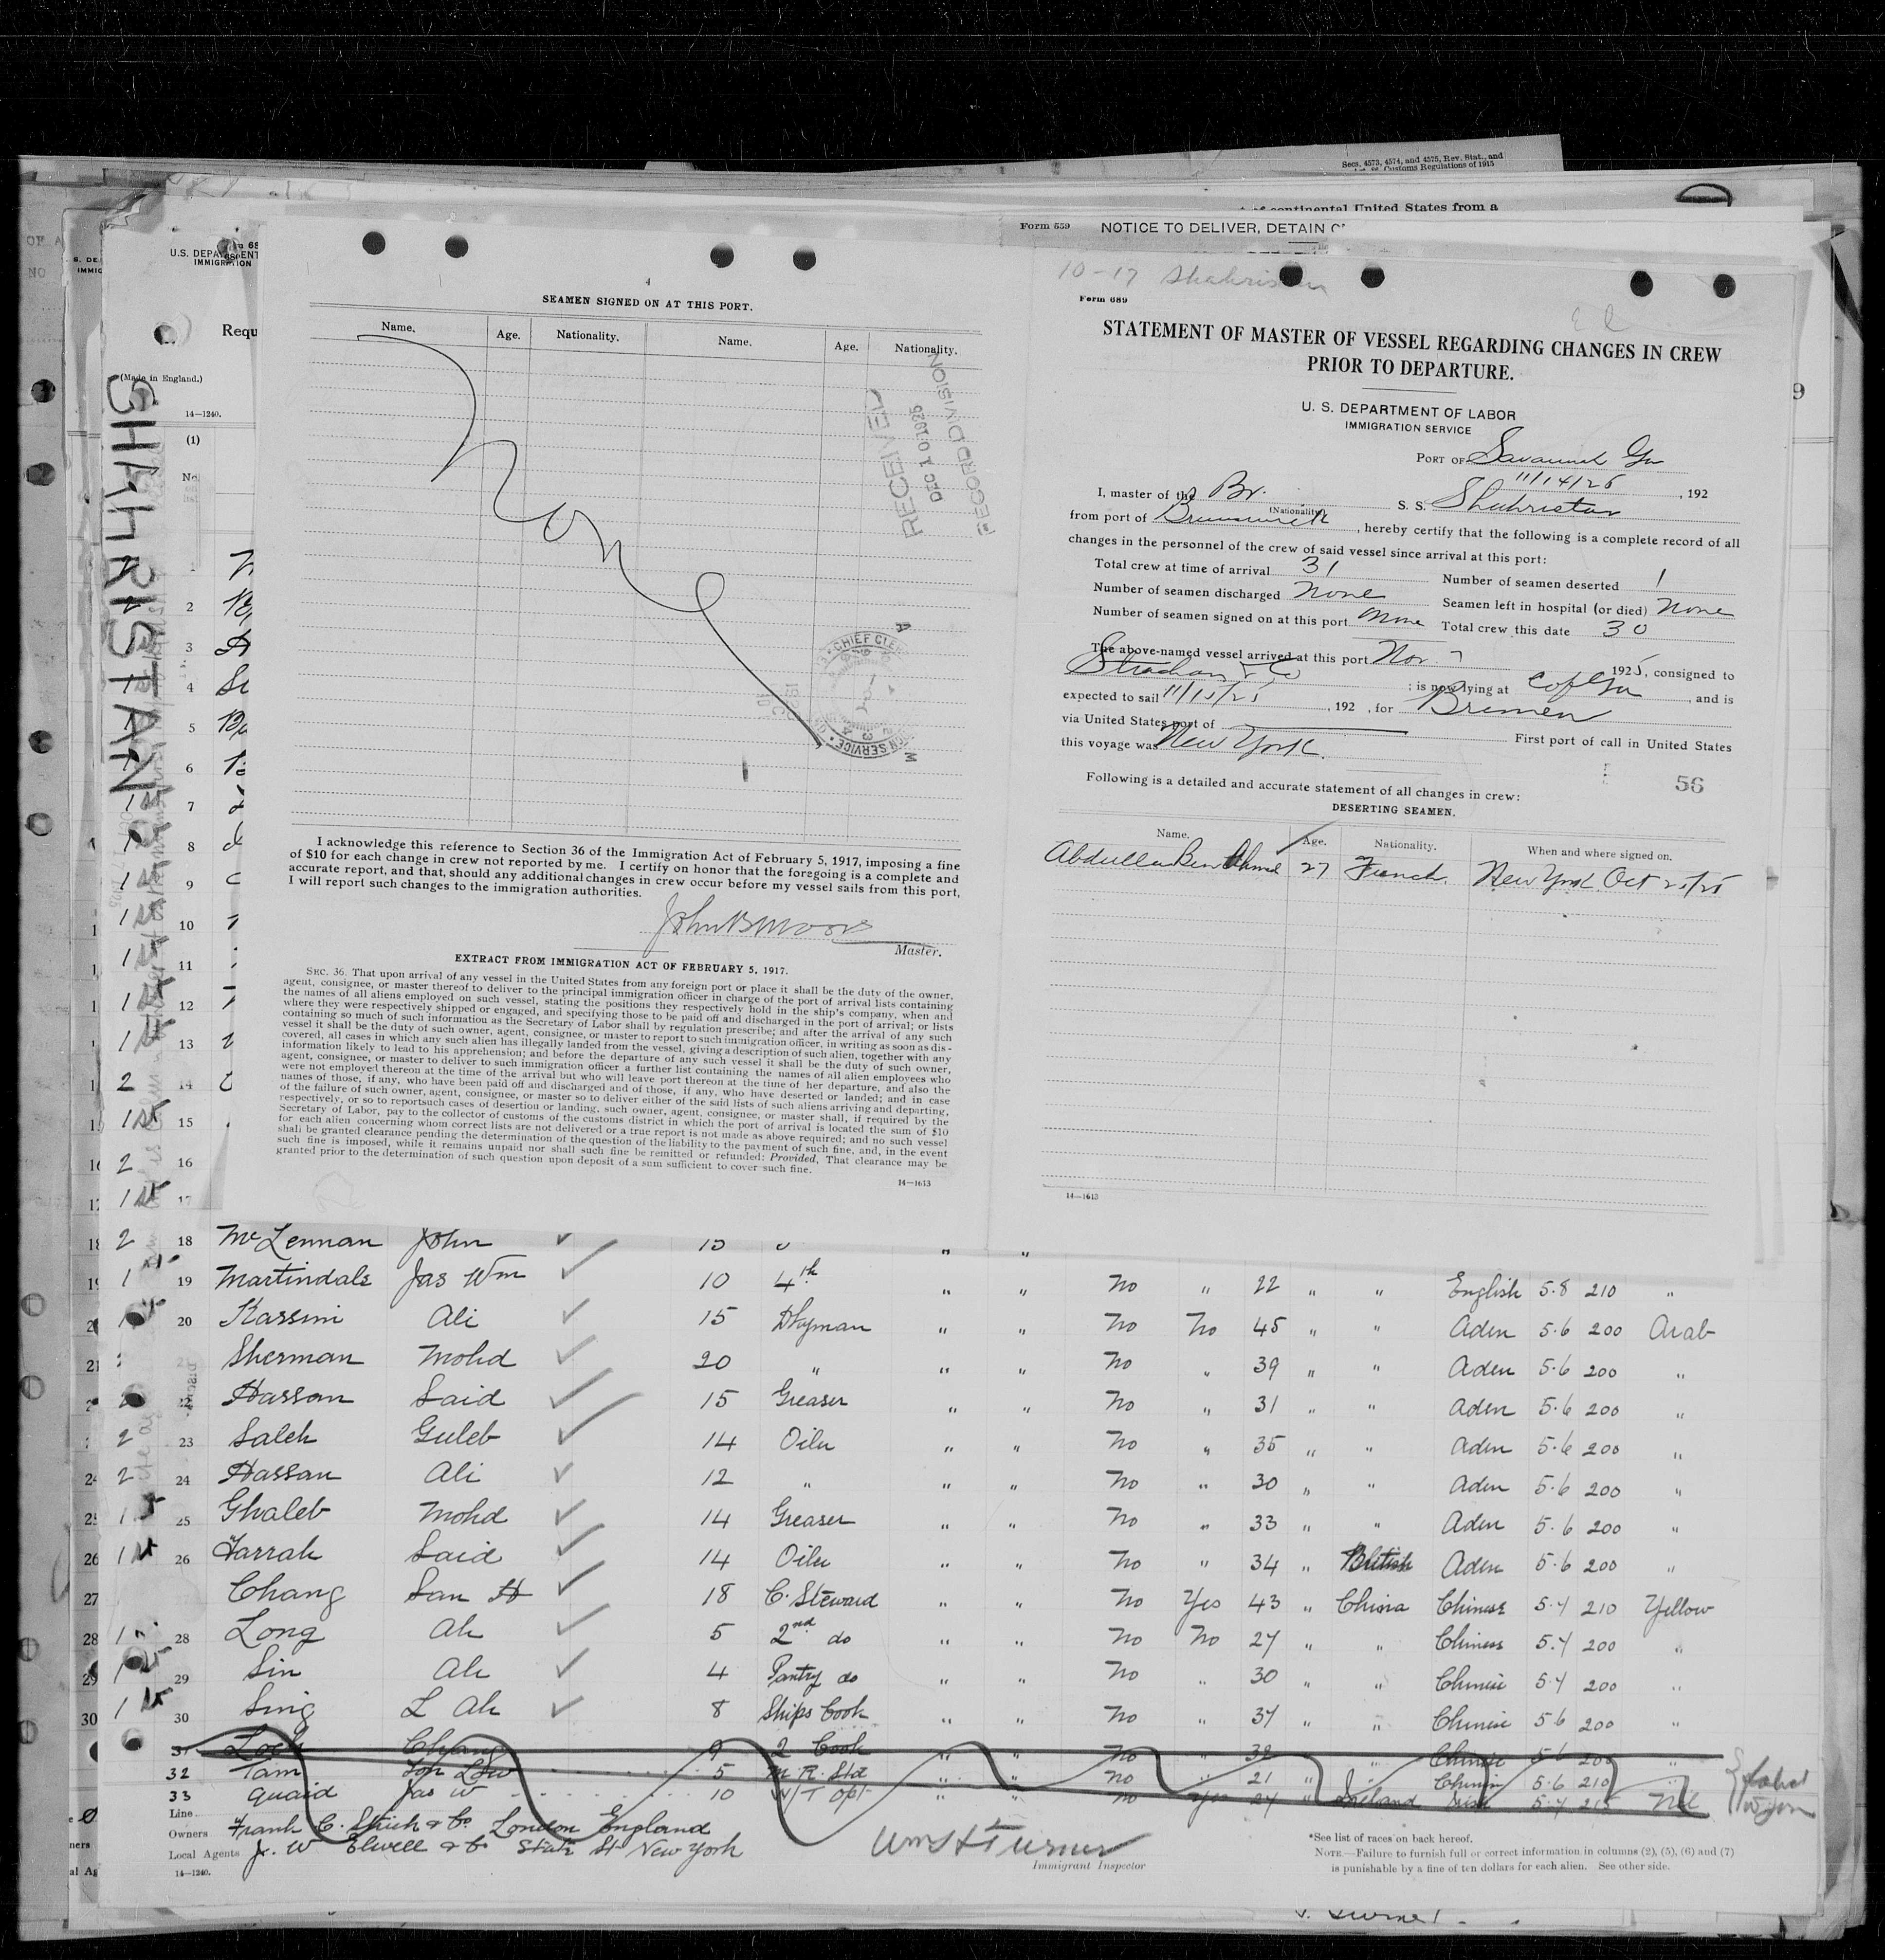 Secs. 4573, 4574, and 4575, Rev. Stat., and
Customs Regulations of 1915
continental United States from a
Form 559 NOTICE TO DELIVER, DETAIN
U.S.
IMMIGRATION
Requ
(Made in England.)
14—1240.
(1)
No.
SHAHRISTAN
4
SEAMEN SIGNED ON AT THIS PORT.
Name. Age. Nationality. Name. Age. Nationality.
None
RECEIVED
DEC 10 1925
RECORD DIVISION
I acknowledge this reference to Section 36 of the Immigration Act of February 5, 1917, imposing a fine
of $10 for each change in crew not reported by me. I certify on honor that the foregoing is a complete and
accurate report, and that, should any additional changes in crew occur before my vessel sails from this port,
I will report such changes to the immigration authorities.
John B Moore
Master.
EXTRACT FROM IMMIGRATION ACT OF FEBRUARY 5, 1917.
SEC. 36. That upon arrival of any vessel in the United States from any foreign port or place it shall be the duty of the owner,
agent, consignee, or master thereof to deliver to the principal immigration officer in charge of the port of arrival lists containing
the names of all aliens employed on such vessel, stating the positions they respectively hold in the ship's company, when and
where they were respectively shipped or engaged, and specifying those to be paid off and discharged in the port of arrival; or lists
containing so much of such information as the Secretary of Labor shall by regulation prescribe; and after the arrival of any such
vessel it shall be the duty of such owner, agent, consignee, or master to report to such immigration officer, in writing as soon as dis-
covered, all cases in which any such alien has illegally landed from the vessel, giving a description of such alien, together with any
information likely to lead to his apprehension; and before the departure of any such vessel it shall be the duty of such owner,
agent, consignee, or master to deliver to such immigration officer a further list containing the names of all alien employees who
were not employed thereon at the time of the arrival but who will leave port thereon at the time of her departure, and also the
names of those, if any, who have been paid off and discharged and of those, if any, who have deserted or landed; and in case
of the failure of such owner, agent, consignee, or master so to deliver either of the said lists of such aliens arriving and departing,
respectively, or so to reportsuch cases of desertion or landing, such owner, agent, consignee, or master shall, if required by the
Secretary of Labor, pay to the collector of customs of the customs district in which the port of arrival is located the sum of $10
for each alien concerning whom correct lists are not delivered or a true report is not made as above required; and no such vessel
shall be granted clearance pending the determination of the question of the liability to the payment of such fine, and, in the event
such fine is imposed, while it remains unpaid nor shall such fine be remitted or refunded: Provided, That clearance may be
granted prior to the determination of such question upon deposit of a sum sufficient to cover such fine.
14—1613
10-17 Shahristan
Form 689
STATEMENT OF MASTER OF VESSEL REGARDING CHANGES IN CREW
PRIOR TO DEPARTURE.
U. S. DEPARTMENT OF LABOR
IMMIGRATION SERVICE
PORT OF Savannah Ga
11/14/25, 192
I, master of the Br. (Nationality) S. S. Shahristan
from port of Brunswick, hereby certify that the following is a complete record of all
changes in the personnel of the crew of said vessel since arrival at this port:
Total crew at time of arrival 31 Number of seamen deserted 1
Number of seamen discharged None Seamen left in hospital (or died) None
Number of seamen signed on at this port None Total crew this date 30
The above-named vessel arrived at this port Nov. 7 1925, consigned to
Strachan & Co; is now lying at CofGa, and is
expected to sail 11/15/25, 192, for Bremen
via United States port of First port of call in United States
this voyage was New York.
56
Following is a detailed and accurate statement of all changes in crew:
DESERTING SEAMEN.
Name. Age. Nationality. When and where signed on.
Abdulla Ben Ahmed 27 French. New York. Oct 25/25
14—1613
18 McLennan John 15 " "
19 Martindale Jas Wm 10 4th " " No " 22 " " English 5.8 210 "
20 Kassim Ali 15 Dkyman " " No No 45 " " Aden 5.6 200 Arab
Sherman Mohd 20 " " " No " 39 " " Aden 5.6 200 "
22 Hassan Said 15 Greaser " " No " 31 " " Aden 5.6 200 "
23 Saleh Guleb 14 Oiler " " No " 35 " " Aden 5.6 200 "
24 Hassan Ali 12 " " " No " 30 " " Aden 5.6 200 "
25 Ghaleb Mohd 14 Greaser " " No " 33 " " Aden 5.6 200 "
26 Farrah Said 14 Oiler " " No " 34 " British Aden 5.6 200 "
27 Chang San H 18 C. Steward " " No Yes 43 " China Chinese 5.4 210 Yellow
28 Long Ah 5 2nd do " " No No 27 " " Chinese 5.4 200 "
29 Sin Ah 4 Pantry do " " No " 30 " " Chinese 5.4 200 "
30 Sing L Ah 8 Ships Cook " " No " 37 " " Chinese 5.6 200 "
31 Loch Chang 9 2 Cook " " No " 32 " Chinese 5.6 200 "
32 Tam 5 M. R. Std " " No " 21 " Chinese 5.6 210 "
33 Quaid Jas W 10 W/T Opt " " No Yes 24 " Ireland Irish 5.4 215 Nil
Line
Owners Frank C. Strick & Co. London England
Local Agents J. W Elwell & Co State St New York
14—1240.
Wm H Turner
Immigrant Inspector
*See list of races on back hereof.
NOTE.—Failure to furnish full or correct information in columns (2), (5), (6) and (7)
is punishable by a fine of ten dollars for each alien. See other side.